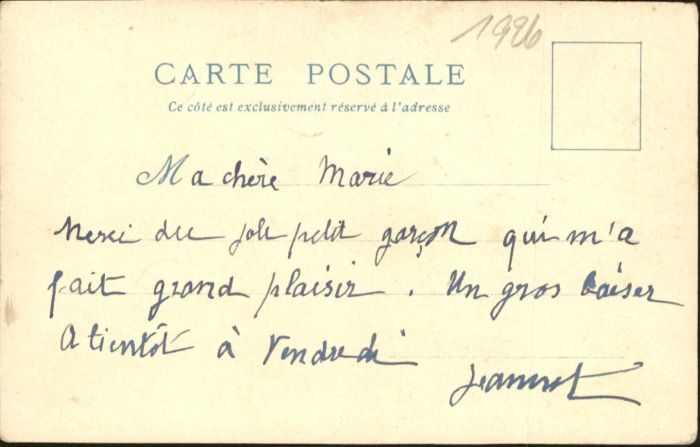 1926
CARTE POSTALE
Ce côté est exclusivement réservé à l'adresse
Ma chère Marie
Merci du joli petit garçon qui m'a
fait grand plaisir. Un gros baiser
A bientôt à Vendredi
Jeannot